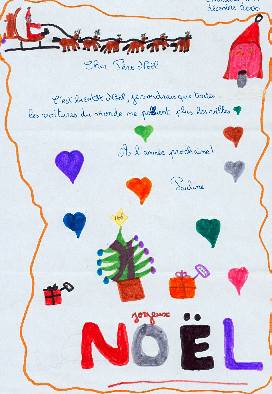 décembre 2006
Cher Père Noël
C'est bientôt Noël, je voudrais que toutes
les voitures du monde ne polluent plus les villes
A l'année prochaine!
Pauline
joyeux
NOËL